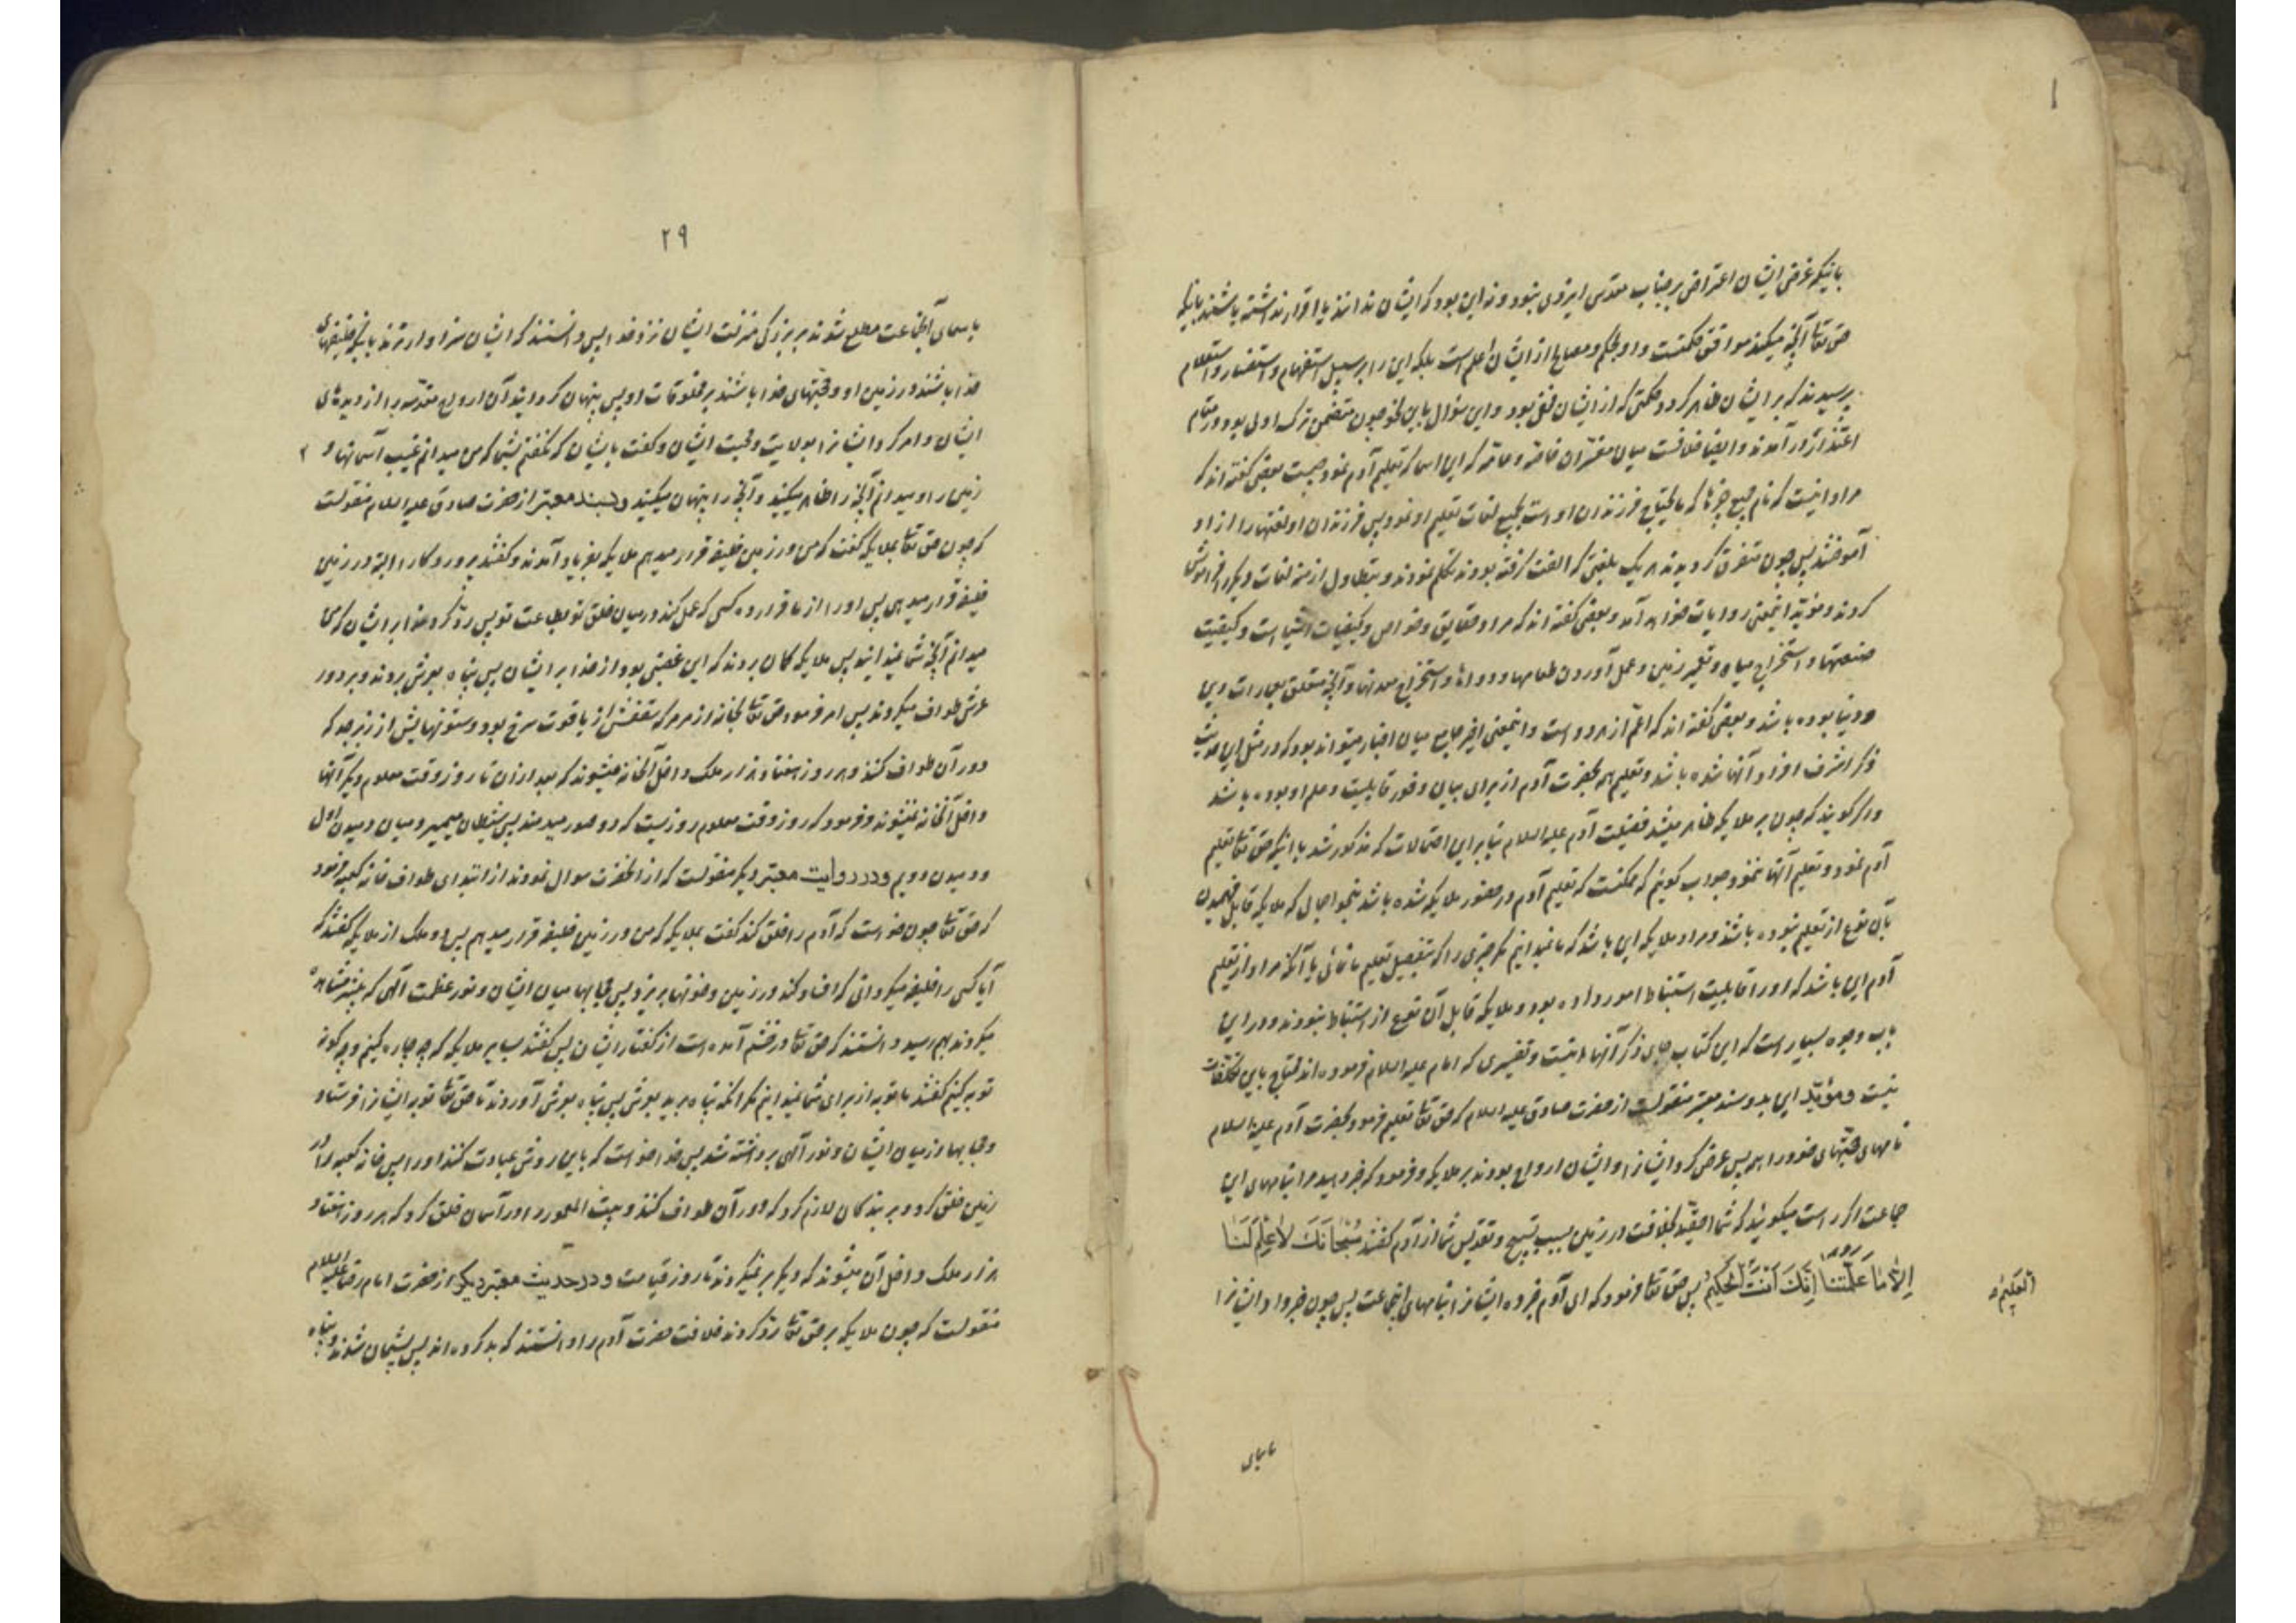 ۱
بانیکه غرض ایشان اعتراض بر جناب مقدس ایزدی نبود و نه این بود که ایشان ندانند یا اقرار نداشته باشند باینکه
حق تعا آنچه میکند موافق حکمتست و او بحکم و مصالح از ایشان اعلم است بلکه این را بر سبیل استفهام و استفسار و استعلام
پرسیدند که بر ایشان ظاهر کردد حکمتی که از ایشان مخفی بود و این سؤال باین نحو چون متضمن ترک اولی بود در مقام
اعتذار در آمدند و ایضا خلافست میان مفسران خاصه و عامه که این اسما که تعلیم آدم نمود چیست بعضی کفته اند که
مراد اینست که نام جمیع چیزها که مایحتاج فرزندان او است بجمیع لغات تعلیم او نمود پس فرزندان او لغتها را از او
آموختند پس چون متفرق کردیدند هر یک بلغتی که الفت کرفته بودند تکلم نمودند و بتطاول ازمنه لغات دیکر را فراموش
کردند و مؤید اینمعنی روایات خواهد آمد و بعضی کفته اند که مراد حقایق و خواص و کیفیات اشیا است و کیفیت
صنعتها و استخراج میاه و تعمیر زمین و عمل آوردن طعامها و دواها و استخراج معدنها و آنچه متعلق بعمارات دین
و دنیا بوده باشد و بعضی کفته اند که اعم از هر دو است و اینمعنی اخیر جامع میان اخبار میتواند بود که در مثل این حدیث
ذکر اشرف افراد آنها شده باشد و تعلیم همه بحضرت آدم از برای بیان وفور قابلیت و علم او بوده باشد
و اکر کویند که چون بر ملایکه ظاهر میشد فضیلت آدم علیه السلام بنا بر این احتمالات که مذکور شد با انیکه حق تعا تعلیم
آدم نمود و تعلیم آنها ننمود جواب کوئیم که ممکنست که تعلیم آدم در حضور ملایکه شده باشد بنحو اجمالی که ملایکه قابل فهمیدن
بآن نوع از تعلیم نبوده باشند و مراد ملایکه این باشد که ما نمیدانیم مکر چیزی را که بتفصیل تعلیم ما نمائی یا آنکه مراد از تعلیم
آدم این باشد که او را قابلیت استنباط امور داده بود و ملایکه قابل آن نوع از استنباط نبودند و در این
باب وجوه بسیار است که این کتاب جای ذکر آنها نیست و تفسیری که امام علیه السلام فرموده اند محتاج باین تکلفات
نیست و مؤید این بدو سند معتبر منقولست از حضرت صادق علیه السلام که حق تعا تعلیم فرمود بحضرت آدم علیه السلام
نامهای حجتهای خود را همه پس عرض کرد ایشانرا و ایشان ارواح بودند بر ملایکه و فرمود که خبر دهید مرا بنامهای این
جماعت اکر راست میکوئید که شما احقید بخلافت در زمین بسبب تسبیح و تقدیس شما از آدم کفتند سُبْحَانَكَ لَا عِلْمَ لَنَا
إِلَّا مَا عَلَّمْتَنَا إِنَّكَ أَنْتَ الْحَكِيمُ پس حق تعا فرمود که ای آدم خبر ده ایشانرا بنامهای اینجماعت پس چون خبر داد ایشانرا
العلیم
باسمای
۲۹
باسمای آنجماعت مطلع شدند بر بزرکی منزلت ایشان نزد خدا پس دانستند که ایشان سزاوارترند باینکه خلیفهای
خدا باشند در زمین او و حجتهای خدا باشند بر مخلوقات او پس پنهان کردانید آن ارواح مقدسه را از دیدهای
ایشان و امر کرد ایشانرا بولایت و محبت ایشان و کفت بایشان که نکفتم بشما که من میدانم غیب آسمانها و
زمین را و میدانم آنچه را اظهار میکنید و آنچه را پنهان میکنید و بسند معتبر از حضرت صادق علیه السلام منقولست
که چون حق تعا بملایکه کفت که من در زمین خلیفه قرار میدهم ملایکه بفریاد آمدند و کفتند پروردکارا البته در زمین
خلیفه قرار میدهی پس او را از ما قرار ده کسی که عمل کند در میان خلق تو بطاعت تو پس رد کرد خدا بر ایشان که من
میدانم آنچه شما نمیدانید پس ملایکه کمان بردند که این غضبی بود از خدا بر ایشان پس پناه بعرش بردند و بر دور
عرش طواف میکردند پس امر فرمود حق تعا بخانه از مرمر که سقفش از یاقوت سرخ بود و ستونهایش از زبرجد که
دور آن طواف کنند و هر روز هفتاد هزار ملک داخل آنخانه میشوند که بعد از آن تا روز وقت معلوم دیکر آنها
داخل آنخانه نمیشوند و فرمود که روز وقت معلوم روزیست که در صور میدمند پس شیطان میمیرد میان دمیدن اول
و دمیدن دویم و در روایت معتبر دیکر منقولست که از آنحضرت سوال نمودند از ابتدای طواف خانه کعبه فرمود
که حق تعا چون خواست که آدم را خلق کند کفت بملایکه که من در زمین خلیفه قرار میدهم پس دو ملک از ملایکه کفتند که
آیا کسی را خلیفه میکردانی که افساد کند در زمین و خونها بریزد پس حجابها میان ایشان و نور عظمت الهی که پیشتر مشاهده
میکردند بهم رسید و دانستند که حق تعا در خشم آمده است از کفتار ایشان پس کفتند بسایر ملایکه که چه چاره کنیم و چکونه
توبه کنیم کفتند ما توبه از برای شما نمیدانیم مکر انکه پناه برید بعرش پس پناه بعرش آوردند تا حق تعا توبه ایشانرا فرستاد
و حجابها از میان ایشان و نور آلهی برداشته شد پس خدا خواست که باین روش عبادت کنند او را پس خانه کعبه را در
زمین خلق کرد و بر بندکان لازم کرد که دور آن طواف کنند و بیت المعمور را در آسمان خلق کرد که هر روز هفتاد
هزار ملک داخل آن میشوند که دیکر بر نمیکردند تا روز قیامت و در حدیث معتبر دیکر از حضرت امام رضا علیه السلام
منقولست که چون ملایکه بر حق تعا رد کردند خلافت حضرت آدم را و دانستند که بد کرده اند پس پشیمان شدند و پناه